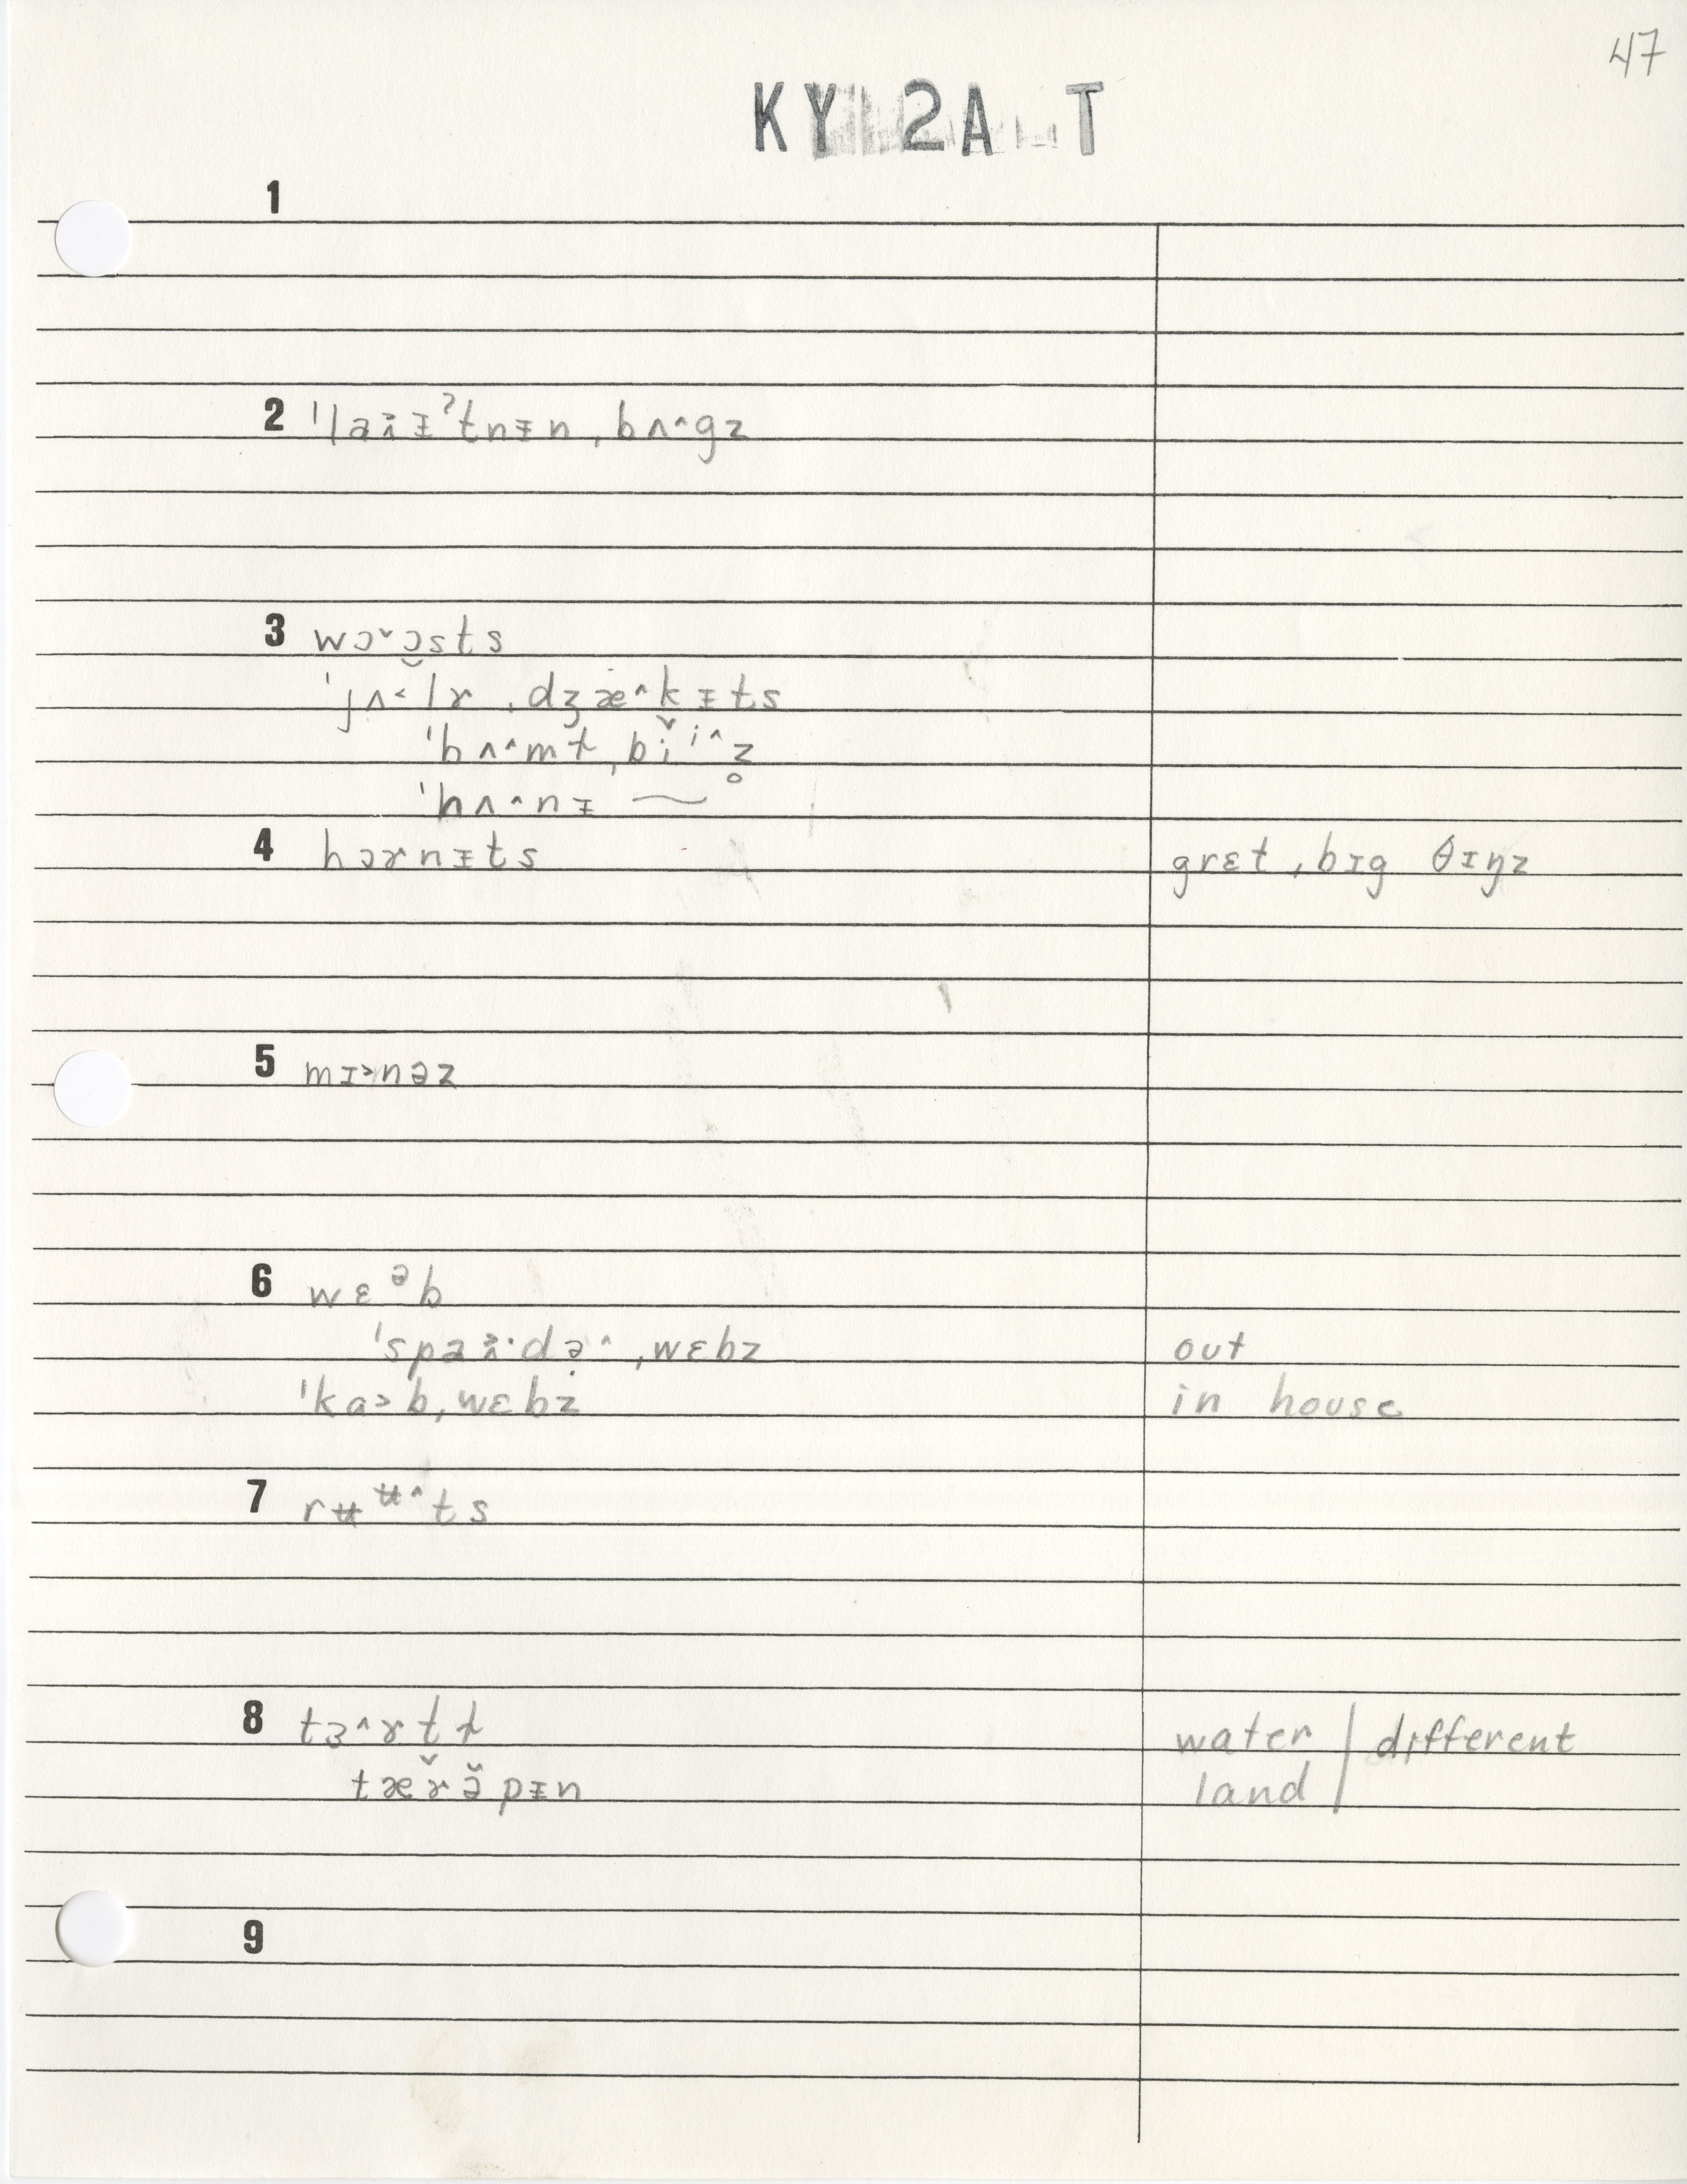 47
KY 2A T
1
2 ˈlaɪ̵ᵊˀtnɪ̵n ˌbʌ˄gz
3 wɔ˅ɔ̯sts
ˈjʌ˂lɤ ˌdʒæ˄kɪ̵ts
ˈbʌ˄mɫ ˌbi̬ⁱ˄z̥
ˈhʌ˄nɪ̵ ⁓
4 hɔɤnɪ̵ts grɛt ˌbɪg θɪŋz
5 mɪ˃nəz
6 wɛᵊb
ˈspaɪ·də̣˄ ˌwɛbz out
ˈka˃b ˌwɛbz in house
7 rʉᶶ˄ts
8 tɜ˄ɤt̬ɫ water | different
tæɤ̆ə̆pɪ̵n land
9